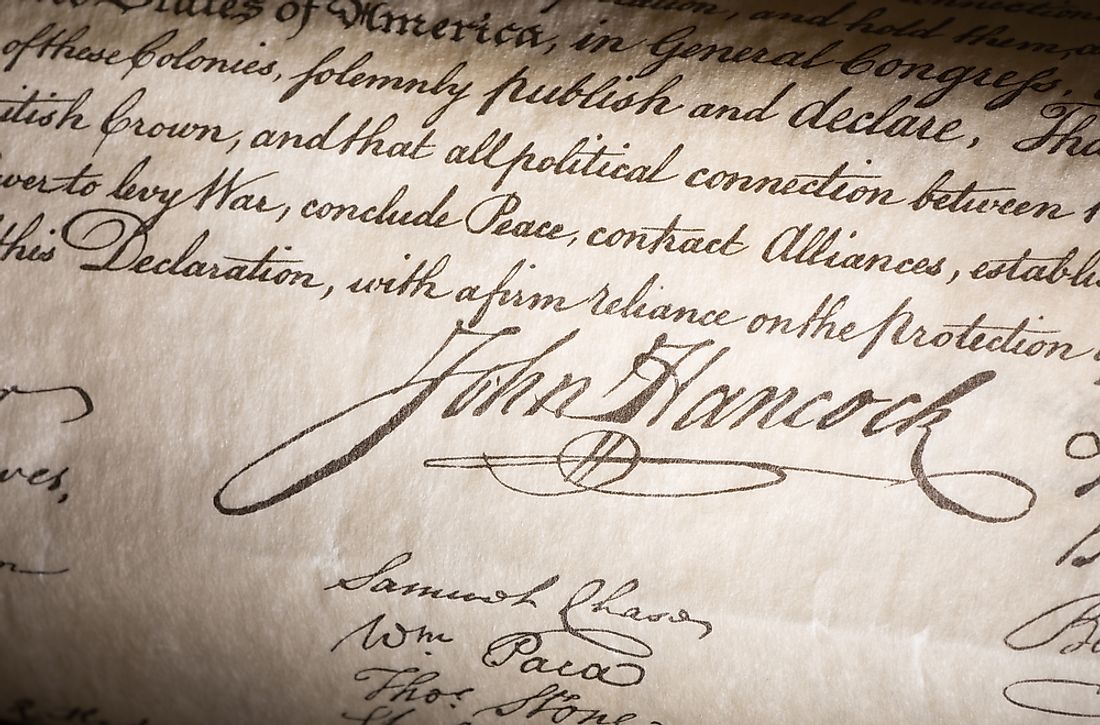 States of America, in General Congress,
and hold them,
of these Colonies, solemnly publish and declare, Tha
itish Crown, and that all political connection between
wer to levy War, conclude Peace, contract Alliances, establi
this Declaration, with a firm reliance on the protection
John Hancock
Samuel Chase
Wm Paca
Thos Stone